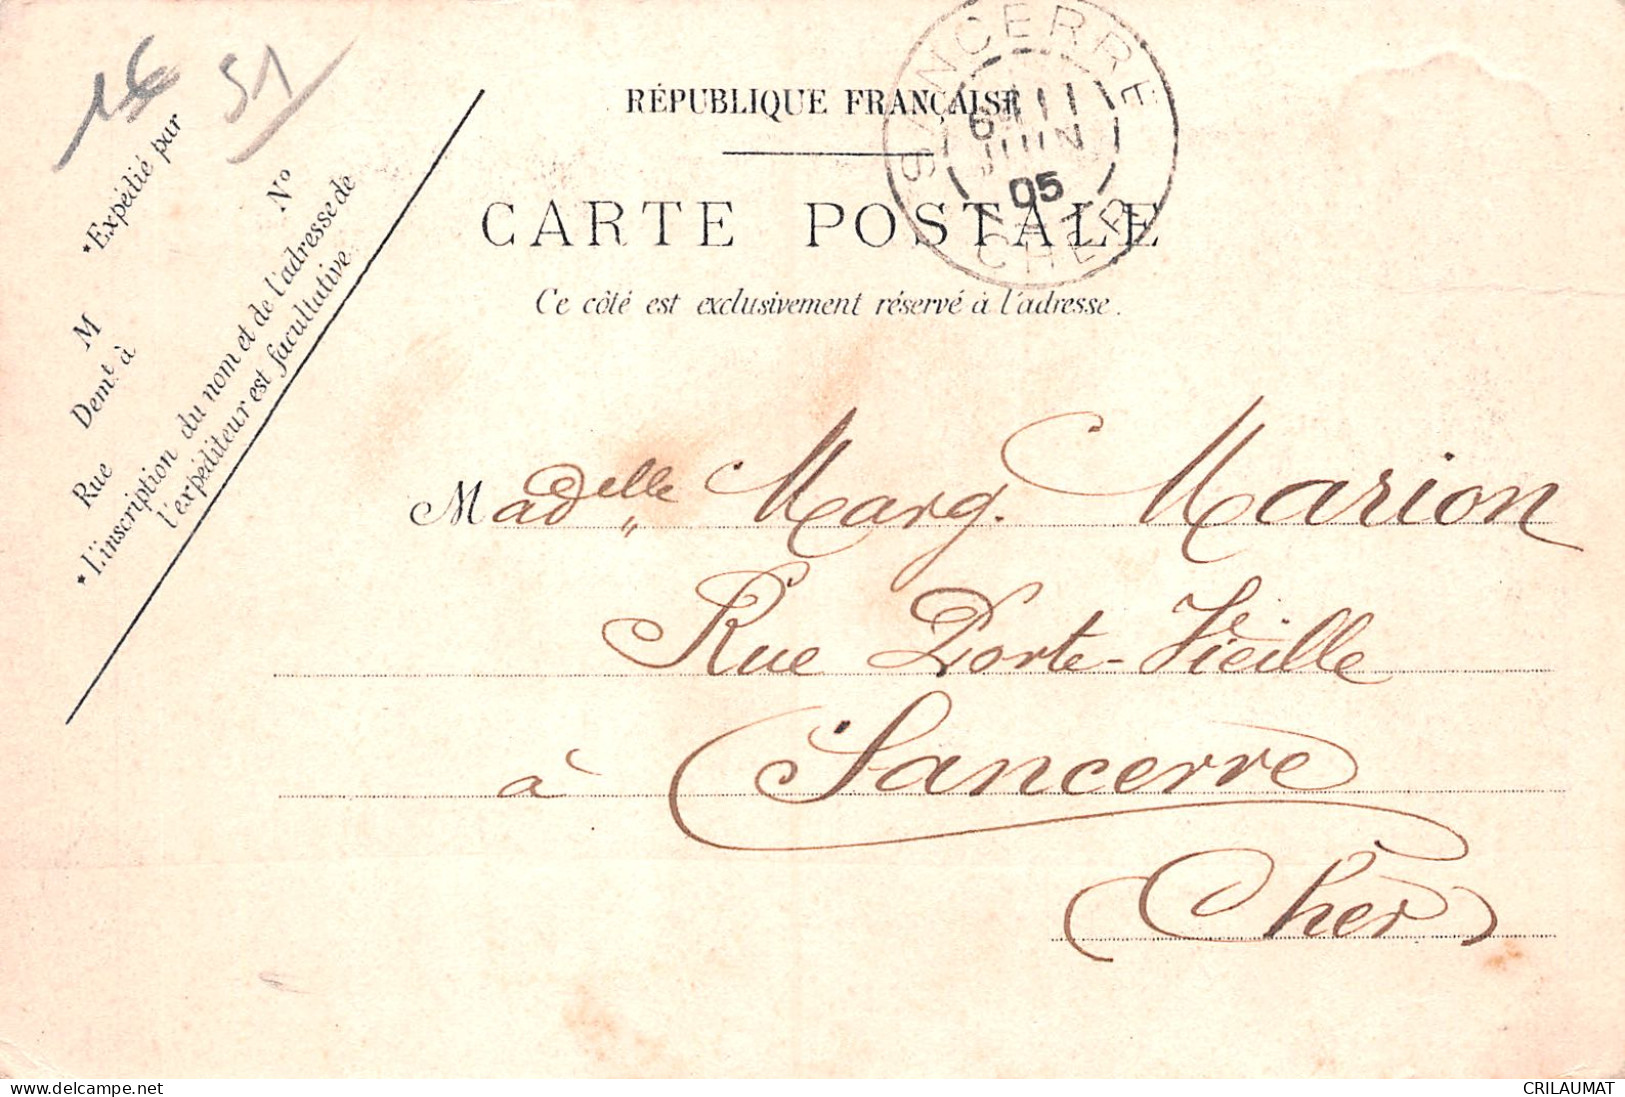 1€
51
RÉPUBLIQUE FRANÇAISE
SANCERRE
JUIN
05
CHER
CARTE POSTALE
Ce côté est exclusivement réservé à l'adresse.
*Expédié par
M
Demt. à
Rue
No
*L'inscription du nom et de l'adresse de
l'expéditeur est facultative.
Madelle Marg. Marion
Rue Porte-Vieille
à Sancerre
(Cher)
delcampe.net
CRILAUMAT